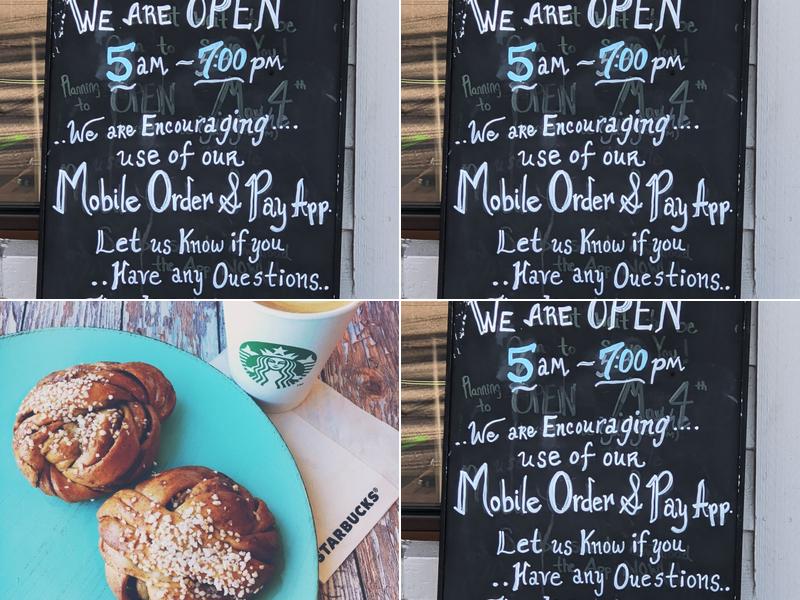 WE ARE OPEN
5am ~ 7:00 pm
Planning
to
OPEN
May 4th
..We are Encouraging....
use of our
Mobile Order & Pay App.
Let us Know if you
..Have any Questions..
WE ARE OPEN
5am ~ 7:00 pm
Planning
to
OPEN
May 4th
..We are Encouraging....
use of our
Mobile Order & Pay App.
Let us Know if you
..Have any Questions..
STARBUCKS®
WE ARE OPEN
5am ~ 7:00 pm
Planning
to
OPEN
May 4th
..We are Encouraging....
use of our
Mobile Order & Pay App.
Let us Know if you
..Have any Questions..